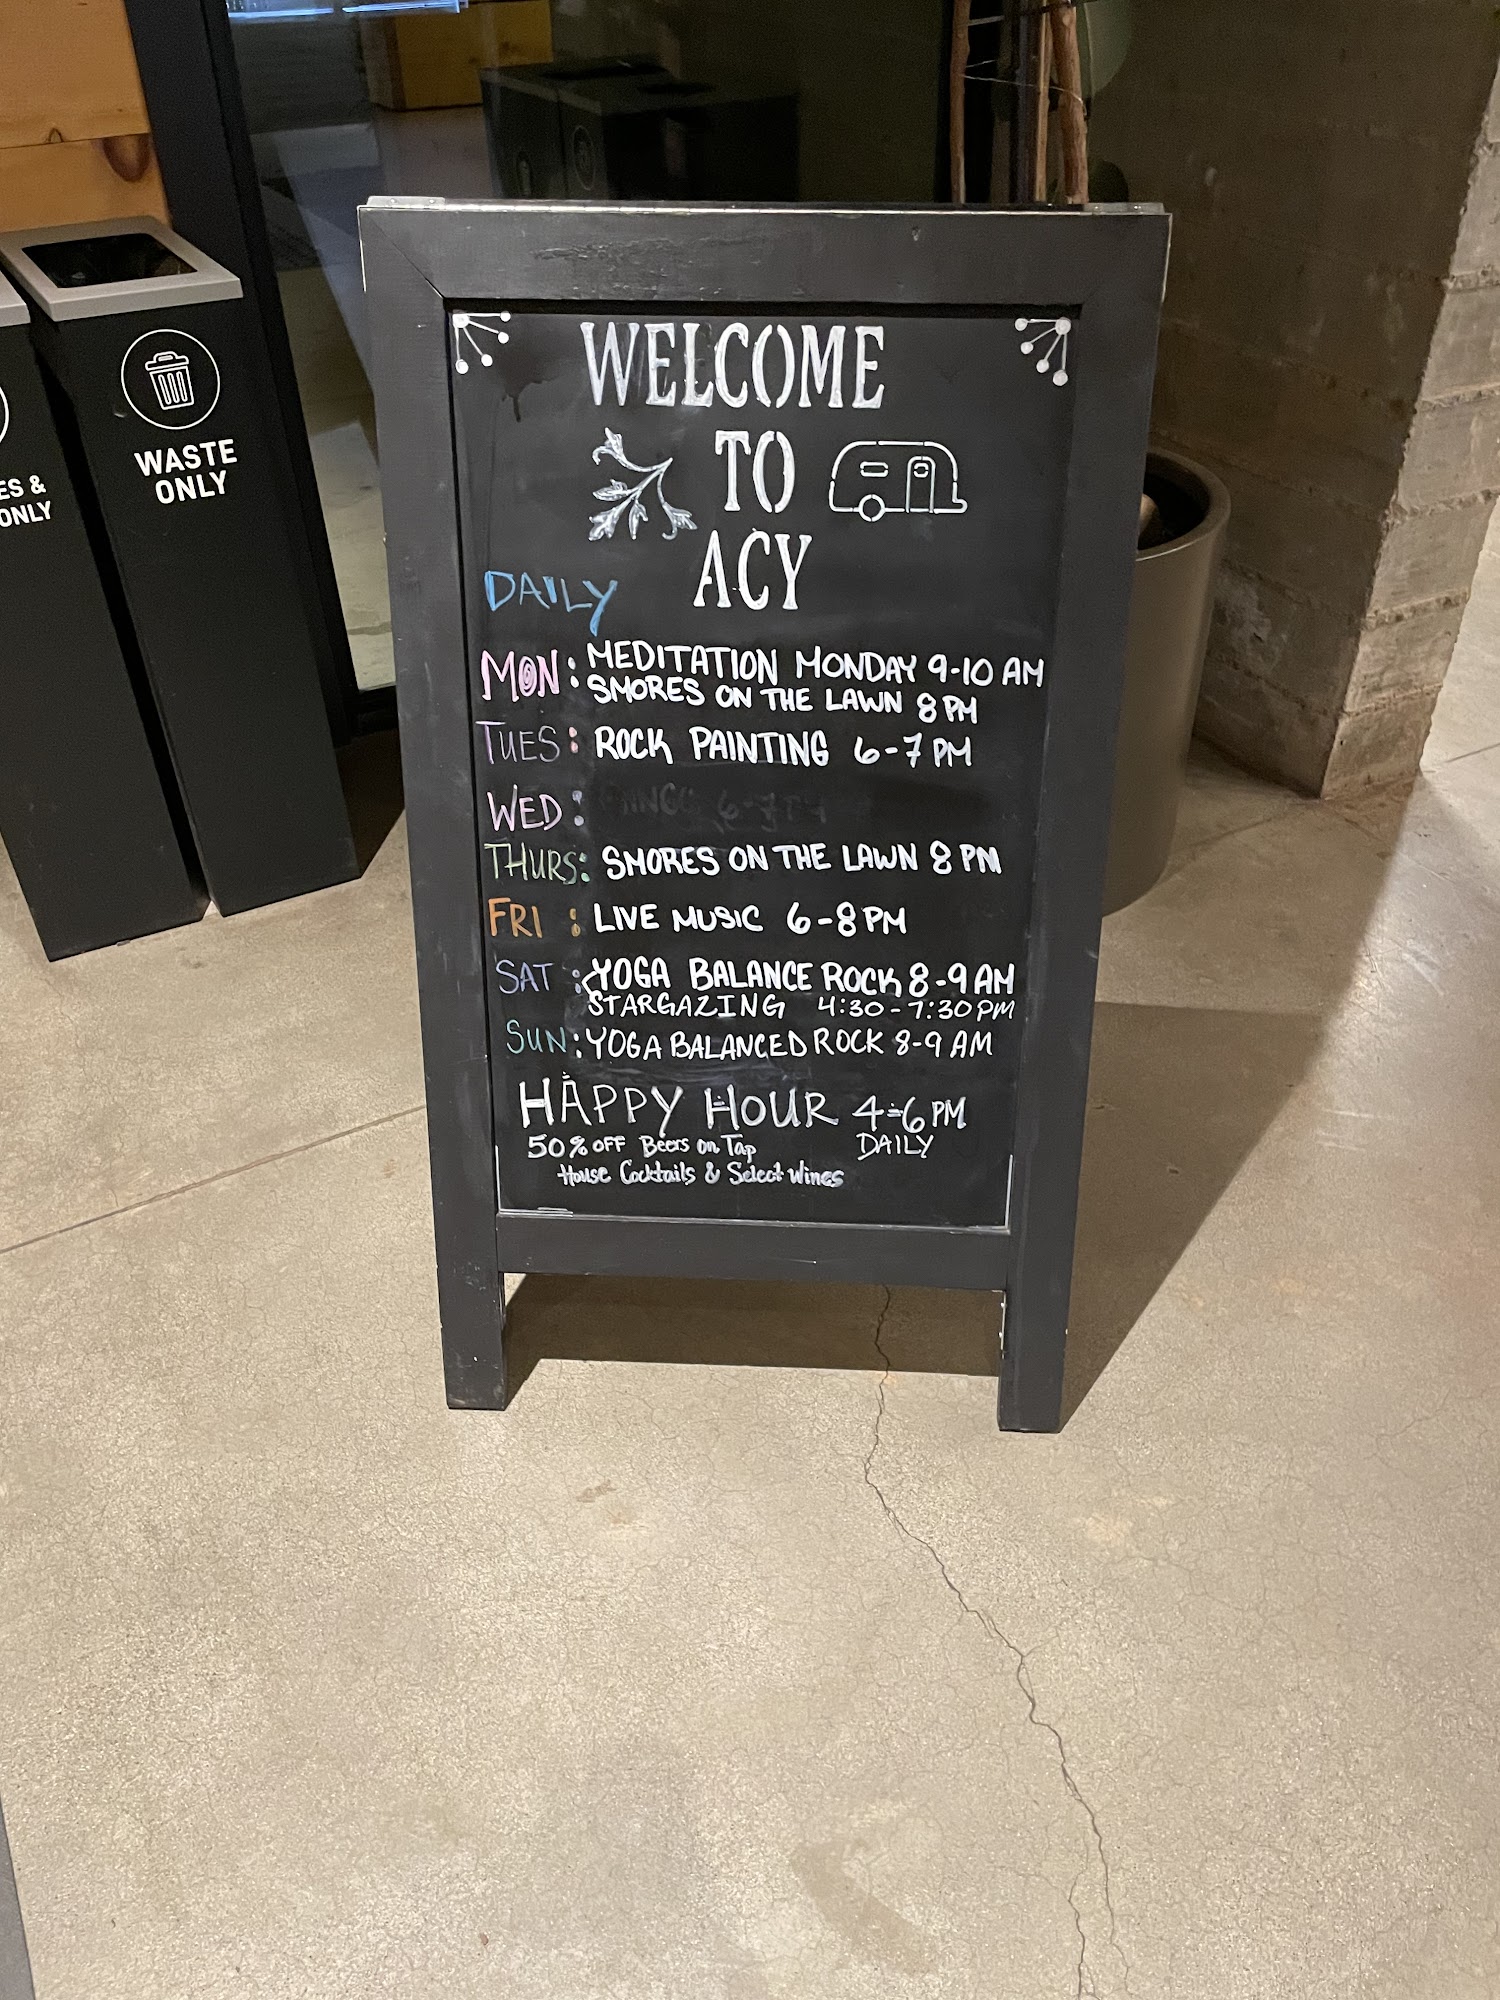 WELCOME
TO
ACY
DAILY
MON: MEDITATION MONDAY 9-10 AM
SMORES ON THE LAWN 8 PM
TUES: ROCK PAINTING 6-7 PM
WED:
THURS: SMORES ON THE LAWN 8 PM
FRI: LIVE MUSIC 6-8 PM
SAT: YOGA BALANCE ROCK 8-9 AM
STARGAZING 4:30-7:30 PM
SUN: YOGA BALANCED ROCK 8-9 AM
HAPPY HOUR 4-6 PM
DAILY
50% OFF Beers on Tap
House Cocktails & Select Wines
WASTE
ONLY
ES &
ONLY